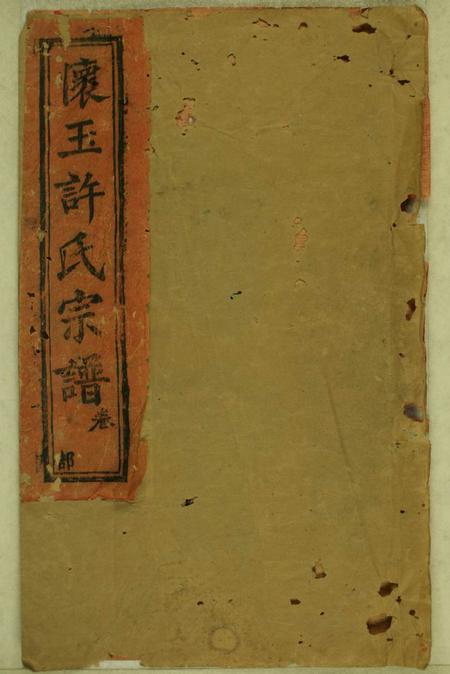 懷玉許氏宗譜卷
部